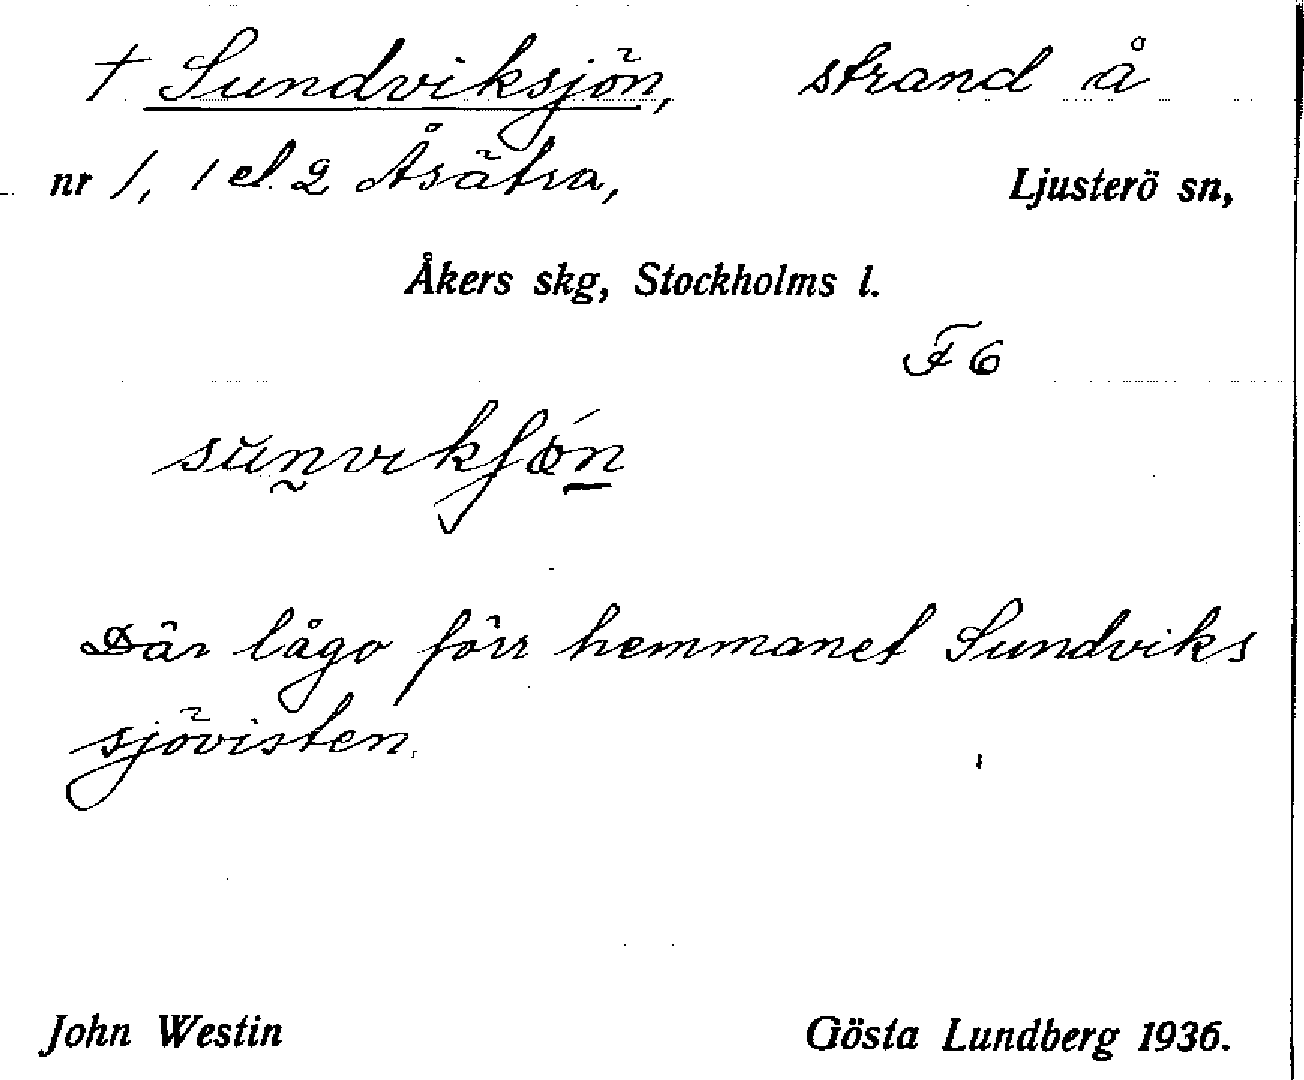 † Sundviksjön, strand å
nr 1, 1 el. 2 Åsätra, Ljusterö sn,
Åkers skg, Stockholms l.
F 6
Där lågo förr hemmanet Sundviks
sjövisten.
John Westin Gösta Lundberg 1936.